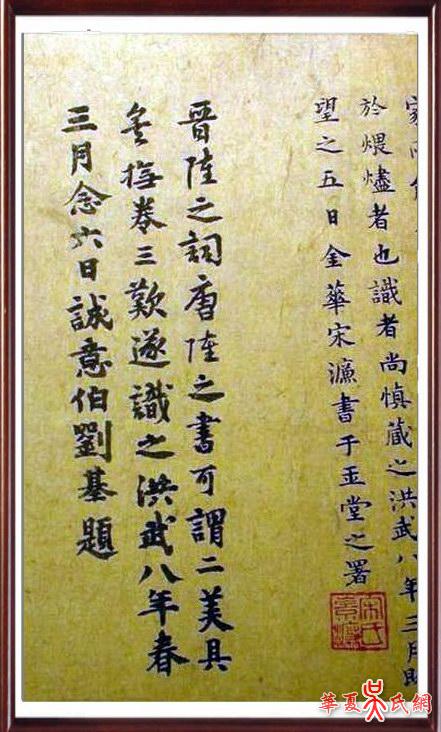 於煨燼者也識者尚慎藏之洪武八年三月既
望之五日金華宋濂書于玉堂之署
宋氏景濂
晉陸之詞唐陸之書可謂二美具
矣撫卷三歎遂識之洪武八年春
三月念六日誠意伯劉基題
華夏吳氏網